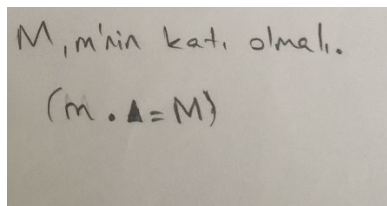 M, m'nin katı olmalı.
(m . ▲ = M)